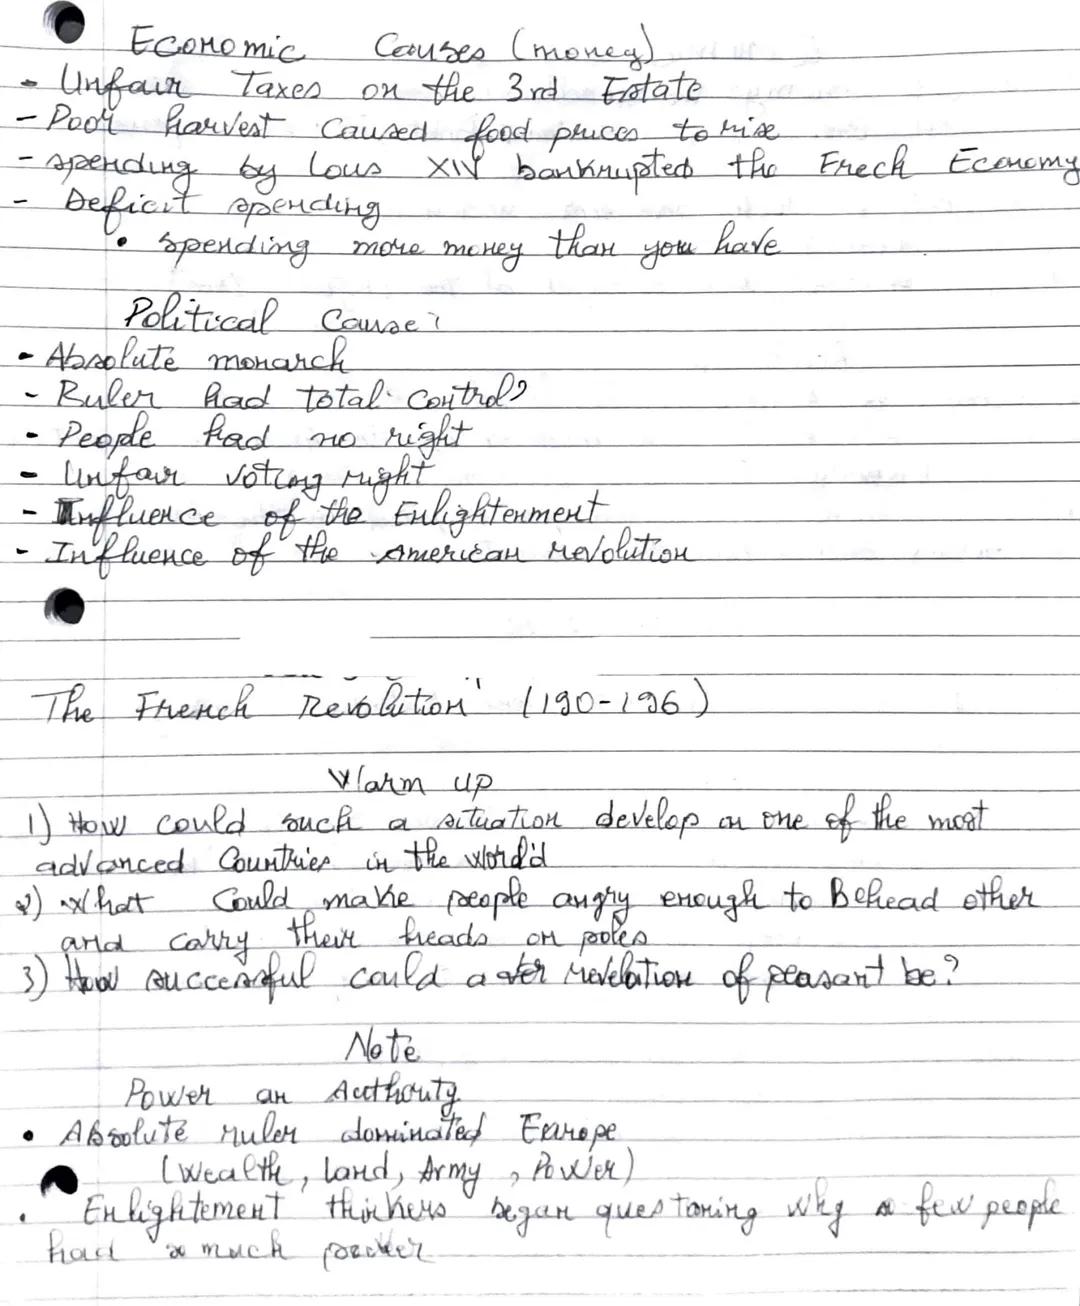 Economic Causes (money)
- Unfair Taxes on the 3rd Estate
- Poor harvest caused food prices to rise
- spending by Lous XIV bankrupted the Frech Economy
- Deficit spending
• spending more money than you have
Political Cause:
- Absolute monarch
- Ruler had total control
- People had no right
- Unfair voting right
- Influence of the Enlightenment
- Influence of the American revolution
The French Revolution (190-196)
Warm up
1) How could such a situation develop on one of the most
advanced Countries in the world
2) What Could make people angry enough to Behead other
and carry their heads on poles
3) How successful could a revelation of peasant be?
Note
Power an Authority
• Absolute ruler dominated Europe
(Wealth, Land, Army, Power)
• Enlightement thinkers began questoning why a few people
had so much power